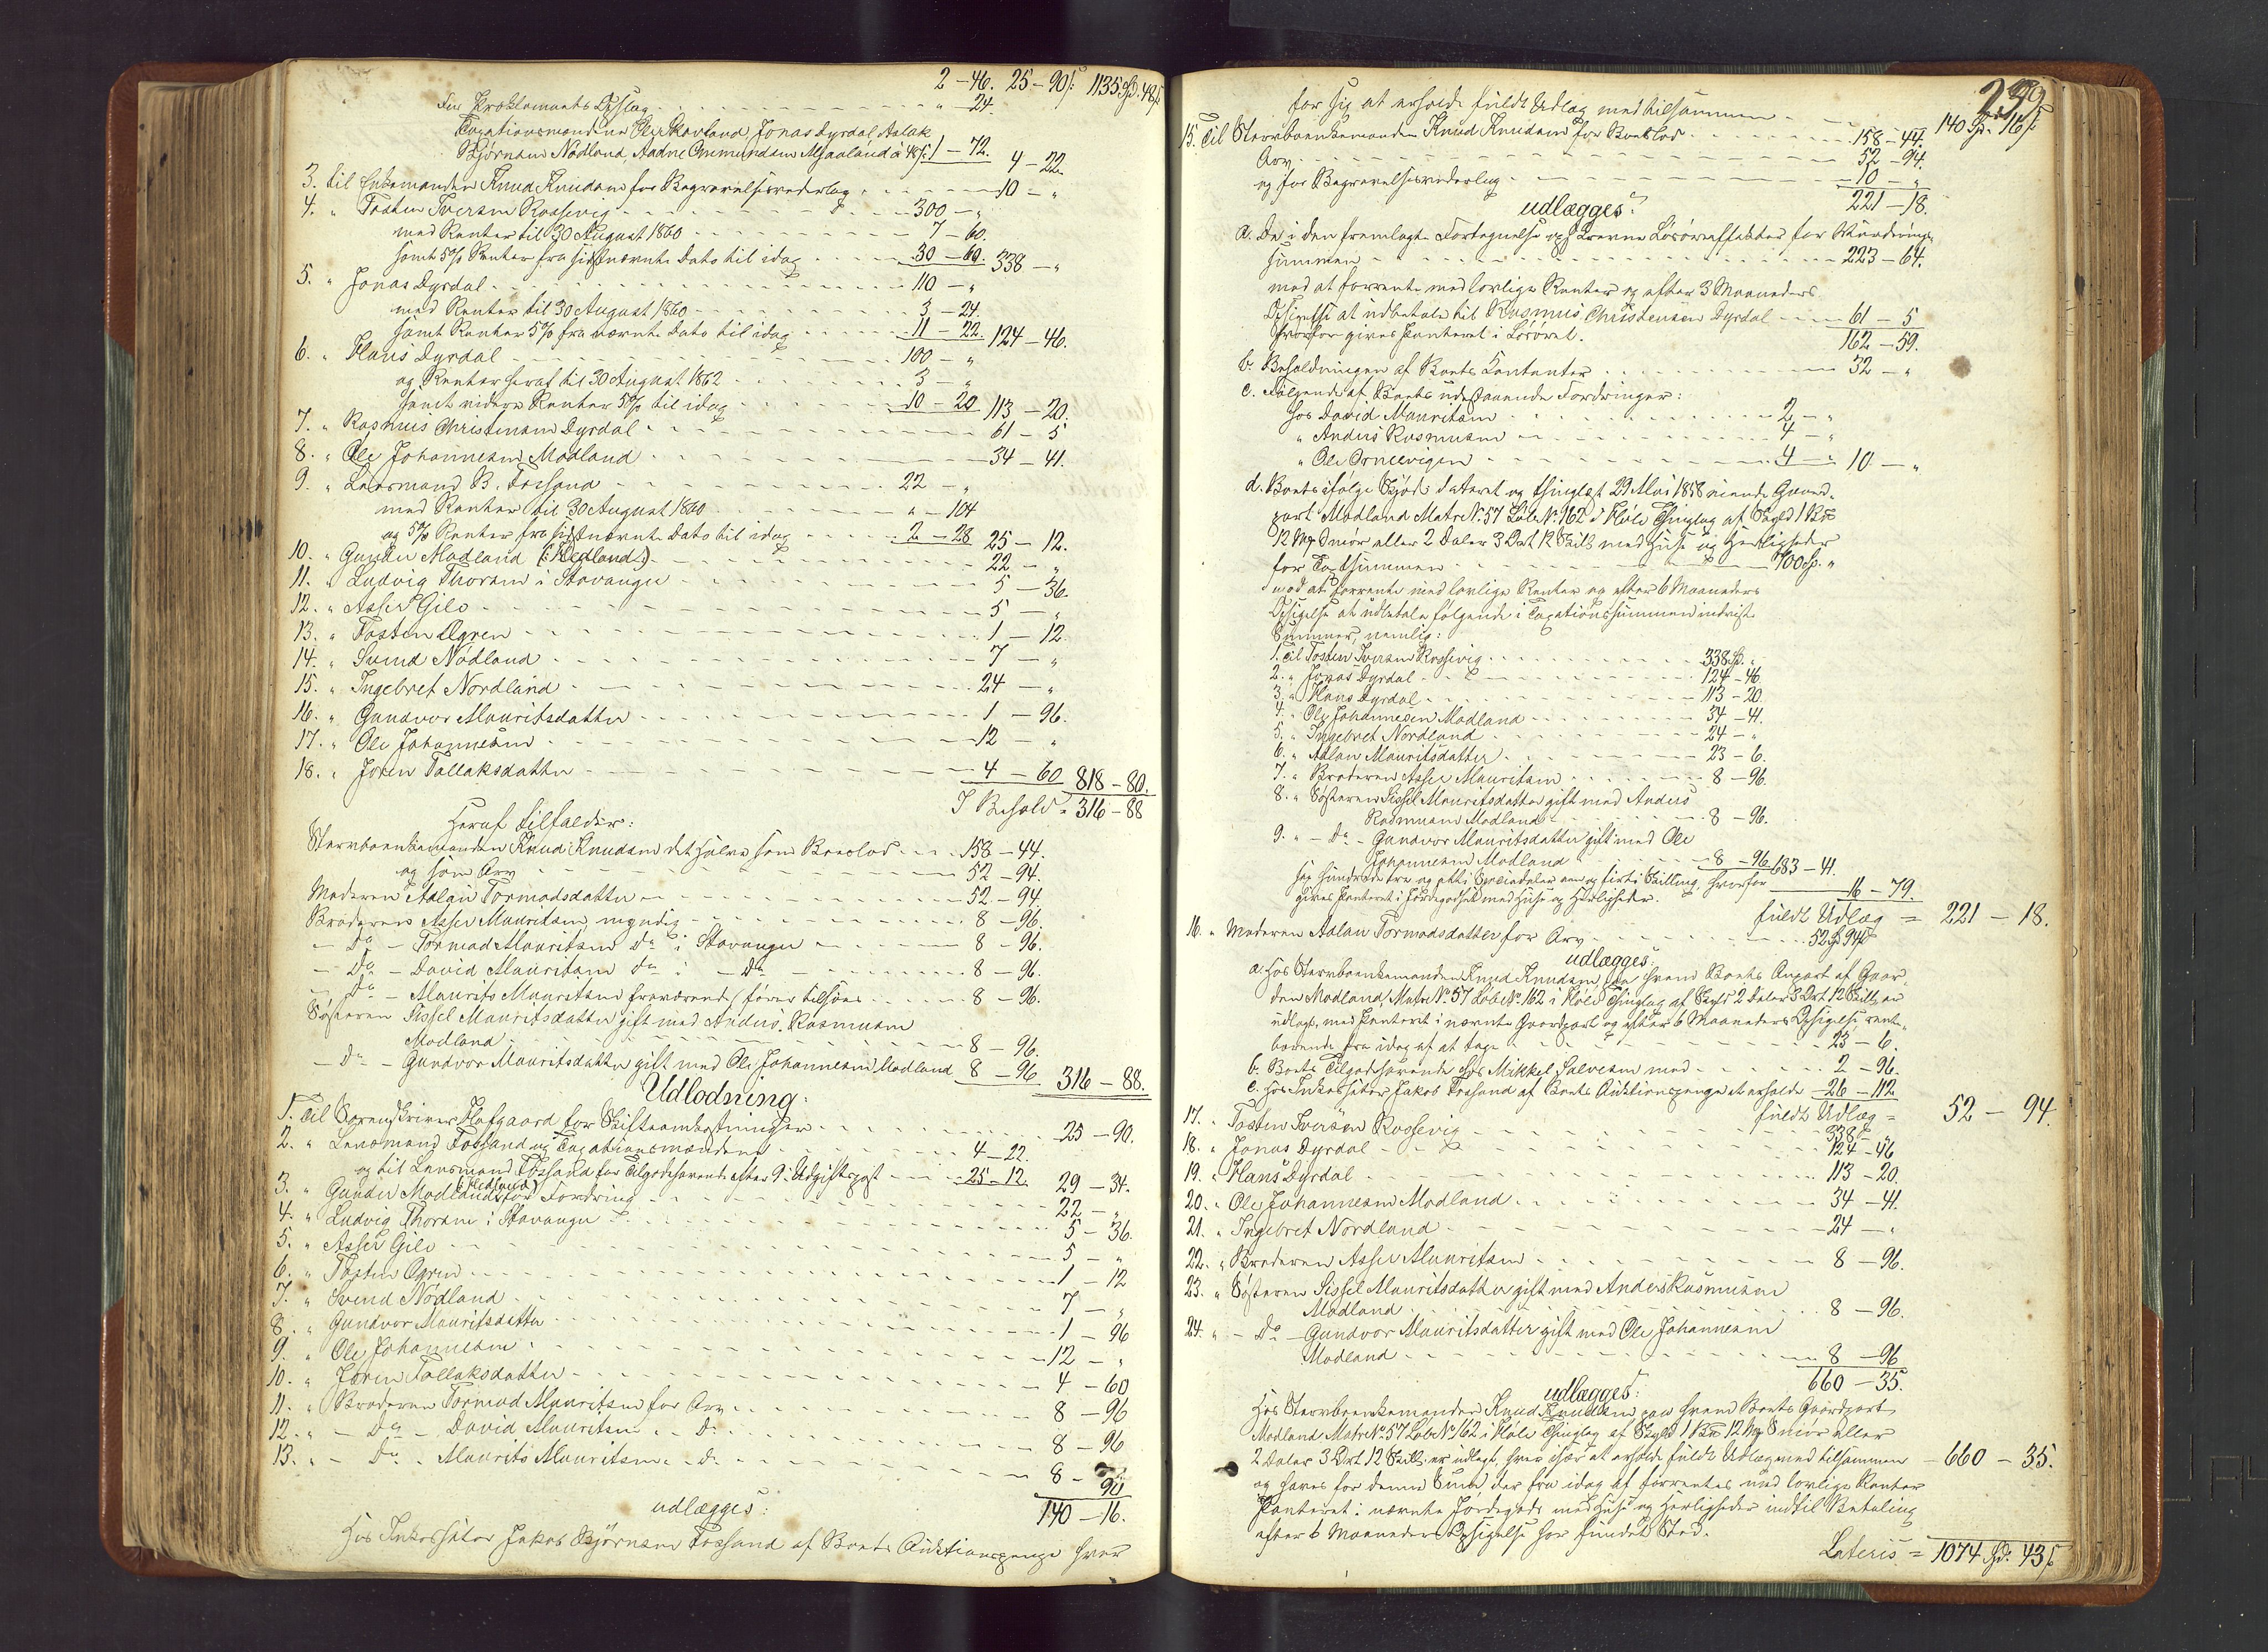 2 - 46. 25 - 90ß. 1135 Spd. 48ß
For Proklamaets Opslag - " - 24.
Taxationsmændene Ole Skovland, Jonas Dyrdal, Aslak
Bjørnsen Nödland, Aadne Omundsen Mjaaland á 48ß. 1 - 72. 4 - 22.
3. til Enkemanden Knud Knudsen for Begravelsesvederlag - 10 - "
4. " Tosten Iversen Rossevig - 300 - "
med Renter til 30 August 1860 - 7 - 60.
samt 5% Renter fra sidstnævnte Dato til idag - 30 - 60. 338 - "
5. " Jonas Dyrdal - 110 - "
med Renter til 30 August 1860 - 3 - 24.
samt Renter 5% fra nævnte Dato til idag - 11 - 22. 124 - 46.
6. " Hans Dyrdal - 100 - "
og Renter heraf til 30 August 1862 - 3 - "
samt videre Renter 5% til idag - 10 - 20 113 - 20.
7. " Rasmus Christensen Dyrdal - 61 - 5
8. " Ole Johannesen Modland - 34 - 41.
9. " Lensmand B. Fossand - 22 - "
med Renter til 30 August 1860 - " - 104
og 5% Renter fra sidstnævnte Dato til idag - 2 - 28 25 - 12.
10. " Gunder Modland (: Hedland :) - 22 - "
11. " Ludvig Thorsen i Stavanger - 5 - 36.
12. " Asser Gilo - 5 - "
13. " Tosten Ogren - 1 - 12.
14. " Svend Nödland - 7 - "
15. " Ingebret Nordland - 24 - "
16. " Gundvor Mauritsdatter - 1 - 96.
17. " Ole Johannesen - 12 - "
18. " Joren Tallaksdatter - 4 - 60 818 - 80.
I Behold = 316 - 88
Heraf tilfalder:
Stervboenkemanden Knud Knudsen det halve som Boeslod - 158 - 44.
og som Arv - 52 - 94.
Moderen Adlau Tormodsdatter - 52 - 94.
Broderen Asser Mauritsen, myndig - 8 - 96.
- Do - Tormod Mauritsen do i Stavanger - 8 - 96.
- Do - David Mauritsen do i - Do - 8 - 96.
- Do - Maurits Mauritsen fraværende, farer tilsöes - 8 - 96.
Søsteren Sissel Mauritsdatter gift med Anders Rasmusen
Modland - 8 - 96.
- Do - Gundvor Mauritsdatter gift med Ole Johannesen Modland 8 - 96 316 - 88.
Udlodning:
1. Til Sorenskriver Hofgaard for Skifteomkostninger - 25 - 90.
2. " Lensmand Fossand og Taxationsmændene - 4 - 22.
og til Lensmand Fossand for Tilgodehavende efter 9. Udgiftspost - 25 - 12. 29 - 34.
3. " Gunder Modland (Hedland) for Fordring - 22 - "
4. " Ludvig Thorsen i Stavanger - 5 - 36.
5. " Asser Gilo - 5 - "
6. " Tosten Ogren - 1 - 12
7. " Svend Nödland - 7 - "
8. " Gundvor Mauritsdatter - 1 - 96
9. " Ole Johannesen - 12 - "
10. " Joren Tallaksdatter - 4 - 60
11. " Broderen Tormod Mauritsen for Arv - 8 - 96
12. " - Do - David Mauritsen - Do - 8 - 96
13. " - Do - Maurits Mauritsen - do - 8 - 96
140 - 16.
udlægges:
Hos Inkassator Jakob Bjørnsen Fossand af Boets Auktionspenge hver
259
for sig at erholde fuldt Udlæg med tilsammen - 140 Spd. 16ß
15. Til Stervboenkemanden Knud Knudsen for Boeslod - 158 - 44.
Arv - 52 - 94.
og for Begravelsesvederlag - 10 - "
221 - 18.
udlægges:
a. De i den fremlagte Fortegnelse opførte Løsöreeffekter for Vurderings-
summen - 223 - 64.
mod at forrente med lovlige Renter og efter 3 Maaneders
Opsigelse at udbetale til Rasmus Christensen Dyrdal - 61 - 5
hvorfor gives Panteret i Løsöret. 162 - 59.
b. Beholdningen af Boets Contanter - 32 - "
c. Følgende af Boets udestaaende Fordringer:
hos David Mauritsen - 2 - "
" Anders Rasmusen - 4 - "
" Ole Ornes - 4 - " 10 - "
d. Boets ifølge Skjøde dateret og thinglæst 29 Mai 1858 eiende Gaard-
part Modland Matr No. 57 Løbe No. 162 i Høle Thinglag af Skyld 1 Bpd
12 Mrk Smør eller 2 Daler 3 Ort 12 Skill. med Huse og Herligheder
for Taxtsummen - 700 Sp. "
mod at forrente med lovlige Renter og efter 6 Maaneders
Opsigelse at udbetale følgende i Taxationssummen indviste
Summer, nemlig:
1. Til Tosten Iversen Rossevig - 338 Sp. "
2. " Jonas Dyrdal - 124 - 46
3. " Hans Dyrdal - 113 - 20
4. " Ole Johannesen Modland - 34 - 41.
5. " Ingebret Nordland - 24 - "
6. " Adlau Mauritsdatter - 23 - 6.
7. " Broderen Asser Mauritsen - 8 - 96
8. " Søsteren Sissel Mauritsdatter gift med Anders
Rasmusen Modland - 8 - 96.
9. " - Do - Gundvor Mauritsdatter gift med Ole
Johannesen Modland - 8 - 96 683 - 41.
sex hundrede tre og otti Speciedaler een og firti Skilling, hvorfor - 16 - 79.
gives Panteret i Jordegodset med Huse og Herligheder.
fuldt Udlæg = 221 - 18.
16. " Moderen Adlau Tormodsdatter for Arv - 52 Sp 94ß
udlægges:
a. Hos Stervboenkemanden Knud Knudsen paa hvem Boets Anpart af Gaar-
den Modland, Matr No. 57 Løbe No. 162 i Høle Thinglag af Skyld 2 Daler 3 Ort 12 Skill. er
udlagt, med Panteret i nævnte Gaardpart og efter 6 Maaneders Opsigelse rente-
bærende fra idag af at tage - 23 - 6.
b. Boets Tilgodehavende hos Mikkel Salvesen med - 2 - 96.
c. Hos Inkassator Jakob Fossand af Boets Auktionspenge at erholde - 26 - 112
fuldt Udlæg = 52 - 94.
17. " Tosten Iversen Rossevig - 338 - "
18. " Jonas Dyrdal - 124 - 46
19. " Hans Dyrdal - 113 - 20.
20. " Ole Johannesen Modland - 34 - 41.
21. " Ingebret Nordland - 24 - "
22. " Broderen Asser Mauritsen - 8 - 96.
23. " Søsteren Sissel Mauritsdatter gift med Anders Rasmusen
Modland - 8 - 96.
24. " - Do - Gundvor Mauritsdatter gift med Ole Johannesen
Modland - 8 - 96
660 - 35.
udlægges:
Hos Stervboenkemanden Knud Knudsen paa hvem Boets Gaardpart
Modland Matr No. 57 Løbe No 162 i Høle Thinglag af Skyld 1 Bpd 12 Mrk Smör eller
2 Daler 3 Ort 12 Skill. er udlagt, hver især at erholde fuldt Udlæg med tilsammen - 660 - 35.
og haves for denne Sum, der fra idag af forrentes med lovlige Renter
Panteret i nævnte Jordegods med Huse og Herligheder indtil Betaling
efter 6 Maaneders Opsigelse har fundet Sted.
Lateris = 1074 Spd. 43ß